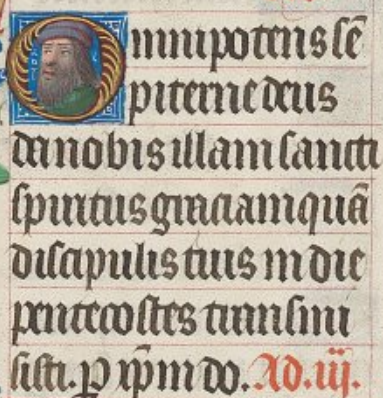 Omnipotens sē
piterne deus
da nobis illam sancti
spiritus graciam quā
discipulis tuis in die
pentecostes transmi
sisti. p xp̄m do. Ad .iij.